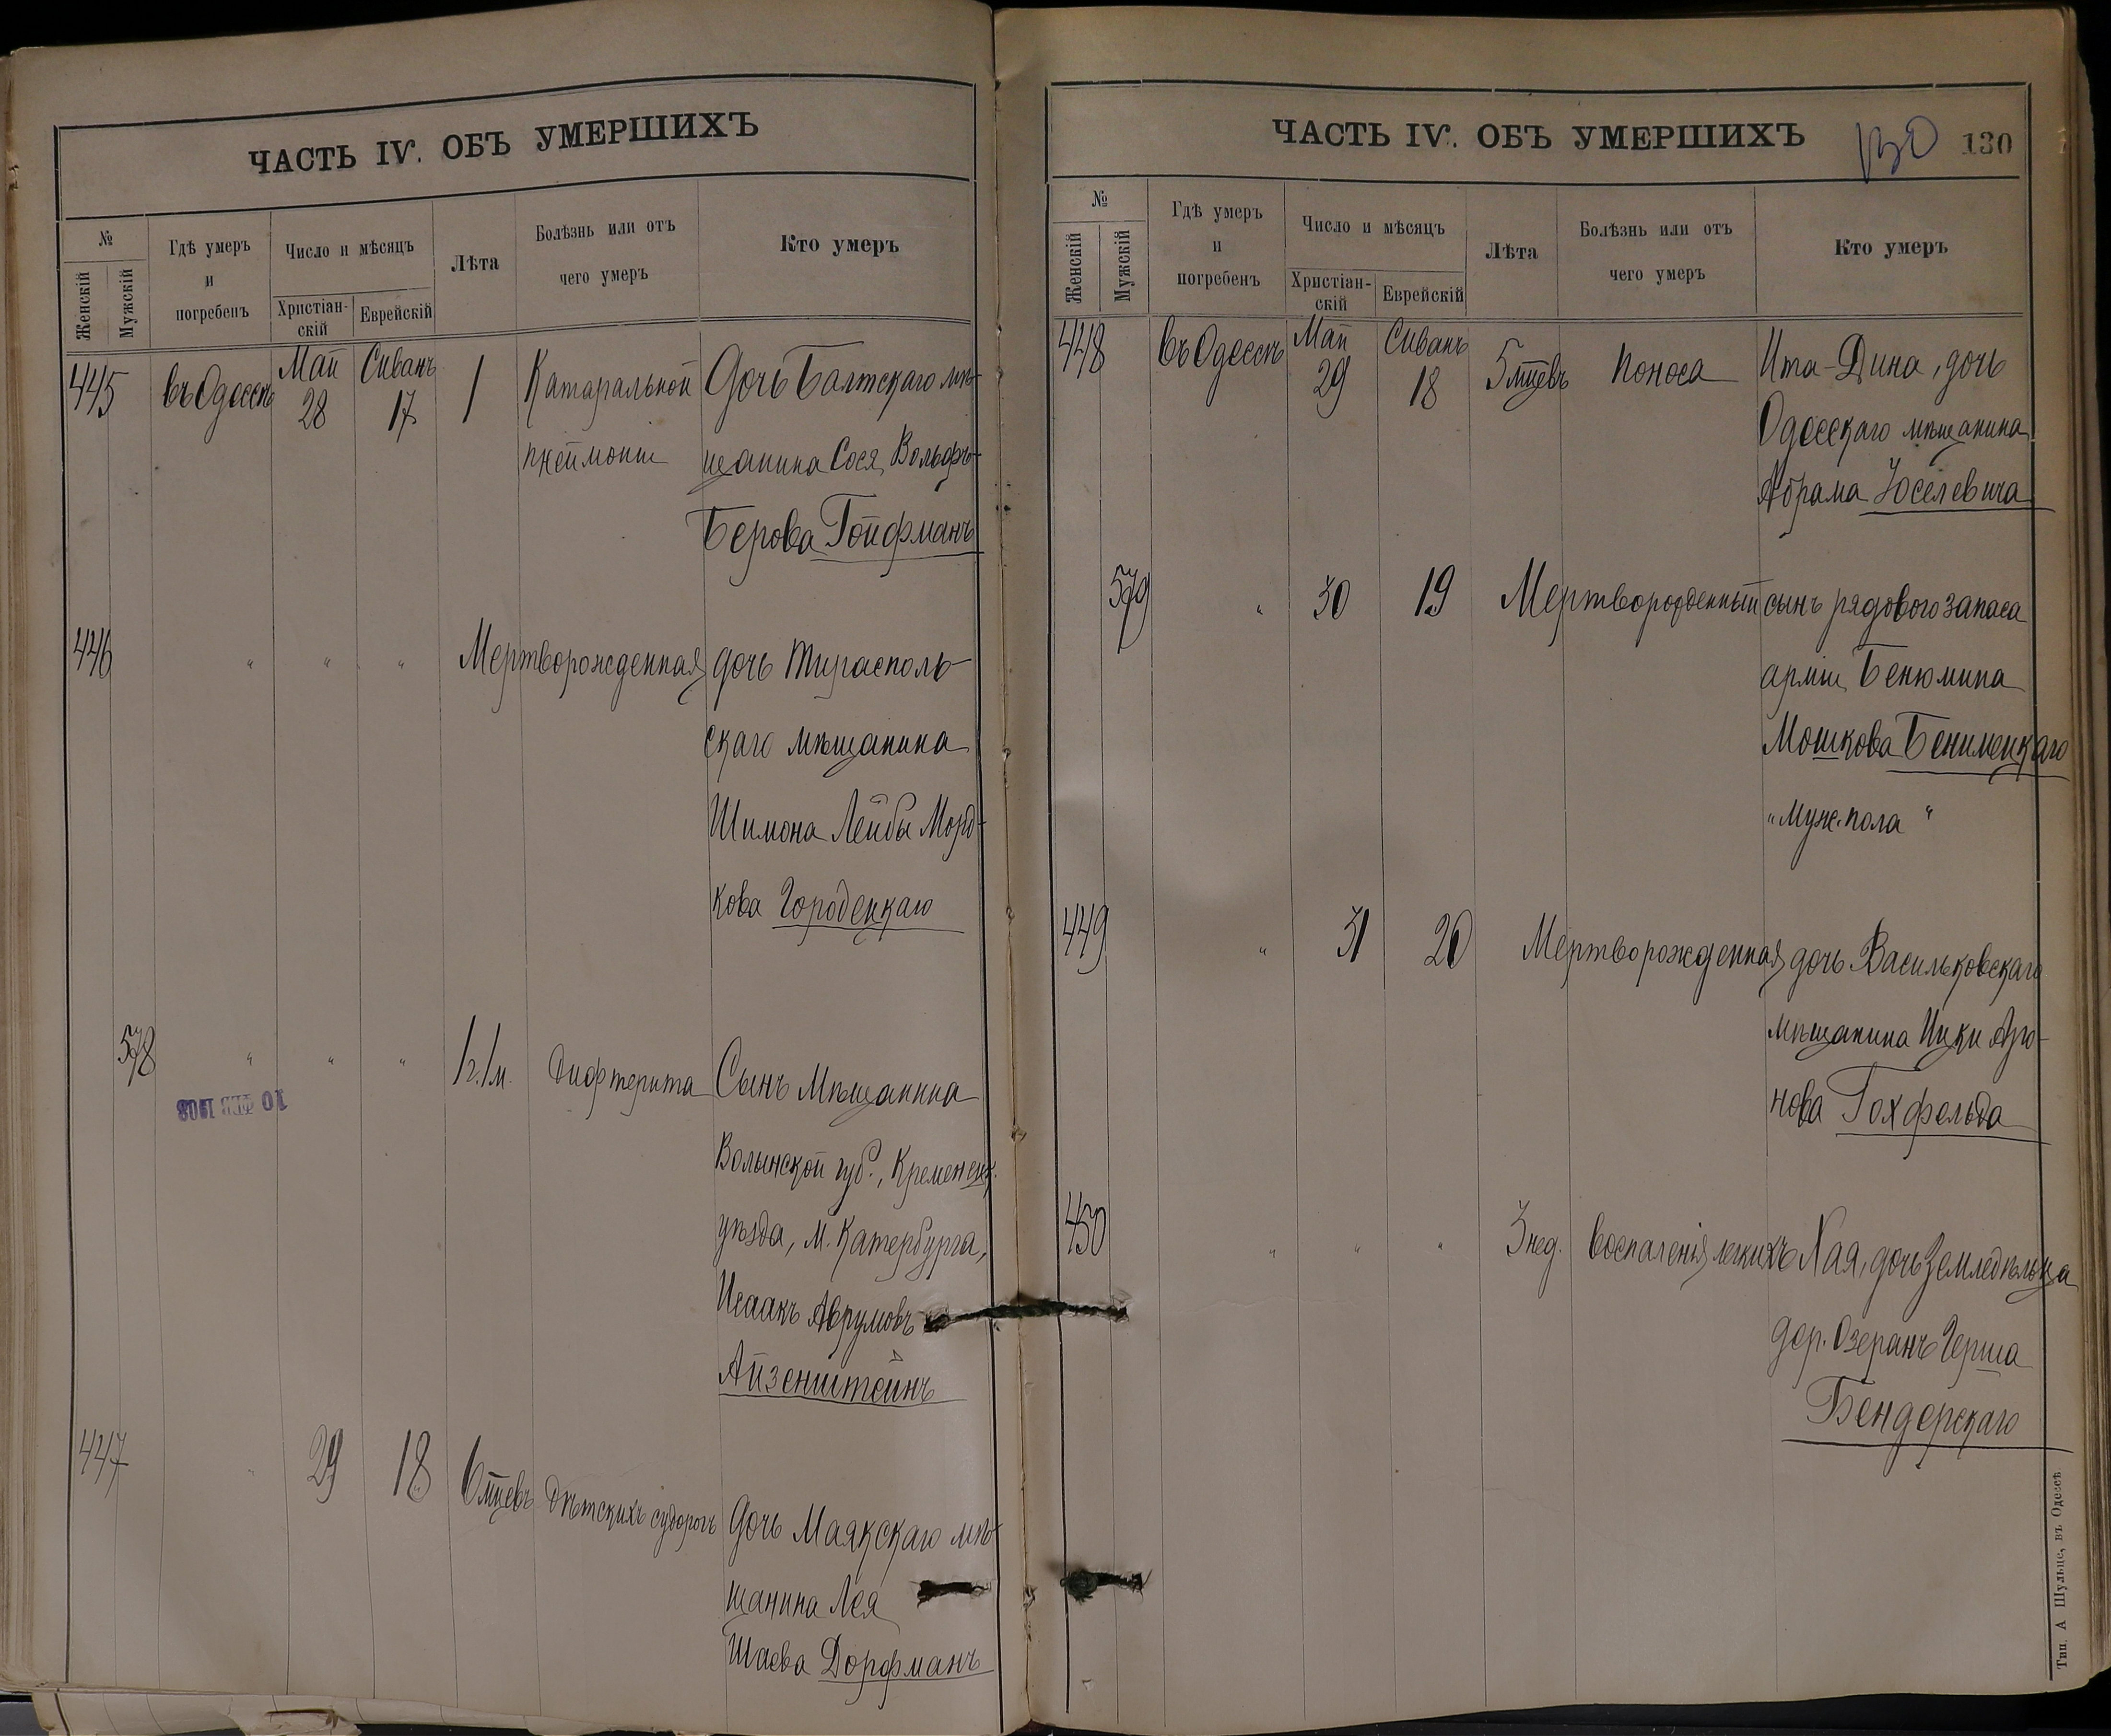 ЧАСТЬ IV. ОБЪ УМЕРШИХЪ
№
Женскій
Мужскій
Гдѣ умеръ
и
погребенъ
Число и мѣсяцъ
Христіан-
скій
Еврейскій
Лѣта
Болѣзнь или отъ
чего умеръ
Кто умеръ
445 въ Одессѣ Май 28 Сиванъ 17 1 Катаральной Дочь Балтскаго мѣ-
пнеймоніи щанина Сося Вольфъ-
Берова Гойфманъ
446 " " " Мертворожденная дочь Тирасполь-
скаго мѣщанина
Шимона Лейбы Морд-
кова Городецкаго
578 " " " 1 г. 1 м. Дифтерита Сынъ Мѣщанина
10 ФЕВ 1908
Волынской губ., Кременецк.
уѣзда, м. Катербурга,
Исаакъ Аврумовъ
Айзенштейнъ
447 " 29 18 6 мцевъ Дѣтскихъ судорогъ Дочь Маякскаго мѣ-
щанина Лея
Шаева Дорфманъ
ЧАСТЬ IV. ОБЪ УМЕРШИХЪ 130 130
№
Женскій
Мужскій
Гдѣ умеръ
и
погребенъ
Число и мѣсяцъ
Христіан-
скій
Еврейскій
Лѣта
Болѣзнь или отъ
чего умеръ
Кто умеръ
448 въ Одессѣ Май 29 Сиванъ 18 5 мцевъ Поноса Ита-Дина, дочь
Одесскаго мѣщанина
Абрама Юселевича
579 " 30 19 Мертворожденный сынъ рядового запаса
арміи Бенюмина
Мошкова Бенимецкаго
"Муж. пола"
449 " 31 20 Мертворожденная дочь Васильковскаго
мѣщанина Ицки Аро-
нова Гохфельда
450 " " " 3 нед. Воспаленія легкихъ Хая, дочь Земледѣльца
дер. Озеранъ Герша
Бендерскаго
Тип. А Шульце, въ Одессѣ.